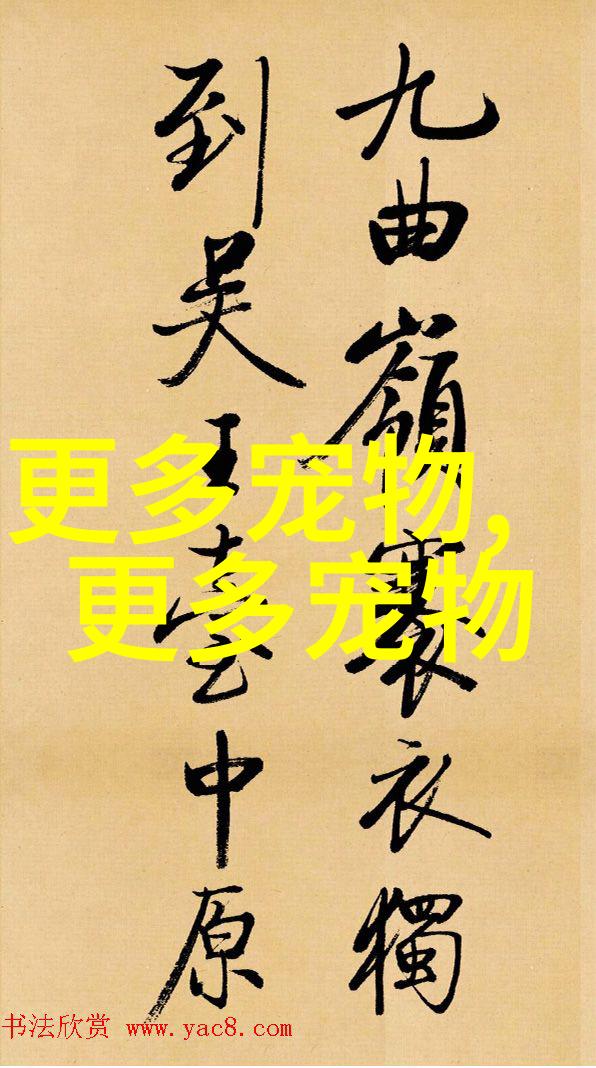 九曲嶺褰衣獨
到吳王臺中原
更多宠物,
更多宠物
书法欣赏 www.yac8.com